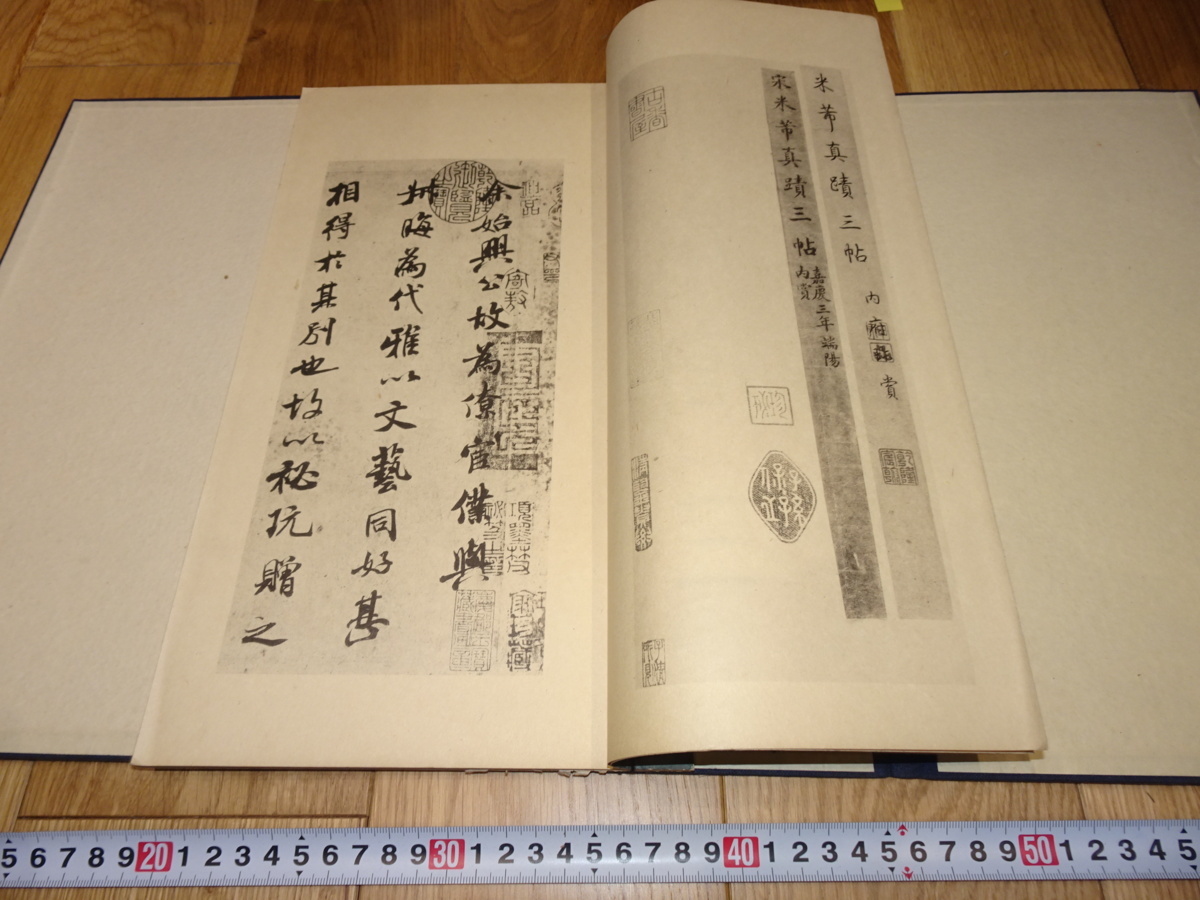 米芾真蹟三帖
宋米芾真蹟三帖
嘉慶三年端陽
內賞
余始興公故為僚宦僕與
叔晦為代雅以文藝同好甚
相得於其別也故以秘玩贈之
項墨林父
秘笈之章
5 6 7 8 9 20 1 2 3 4 5 6 7 8 9 30 1 2 3 4 5 6 7 8 9 40 1 2 3 4 5 6 7 8 9 50 1 2 3 4 5